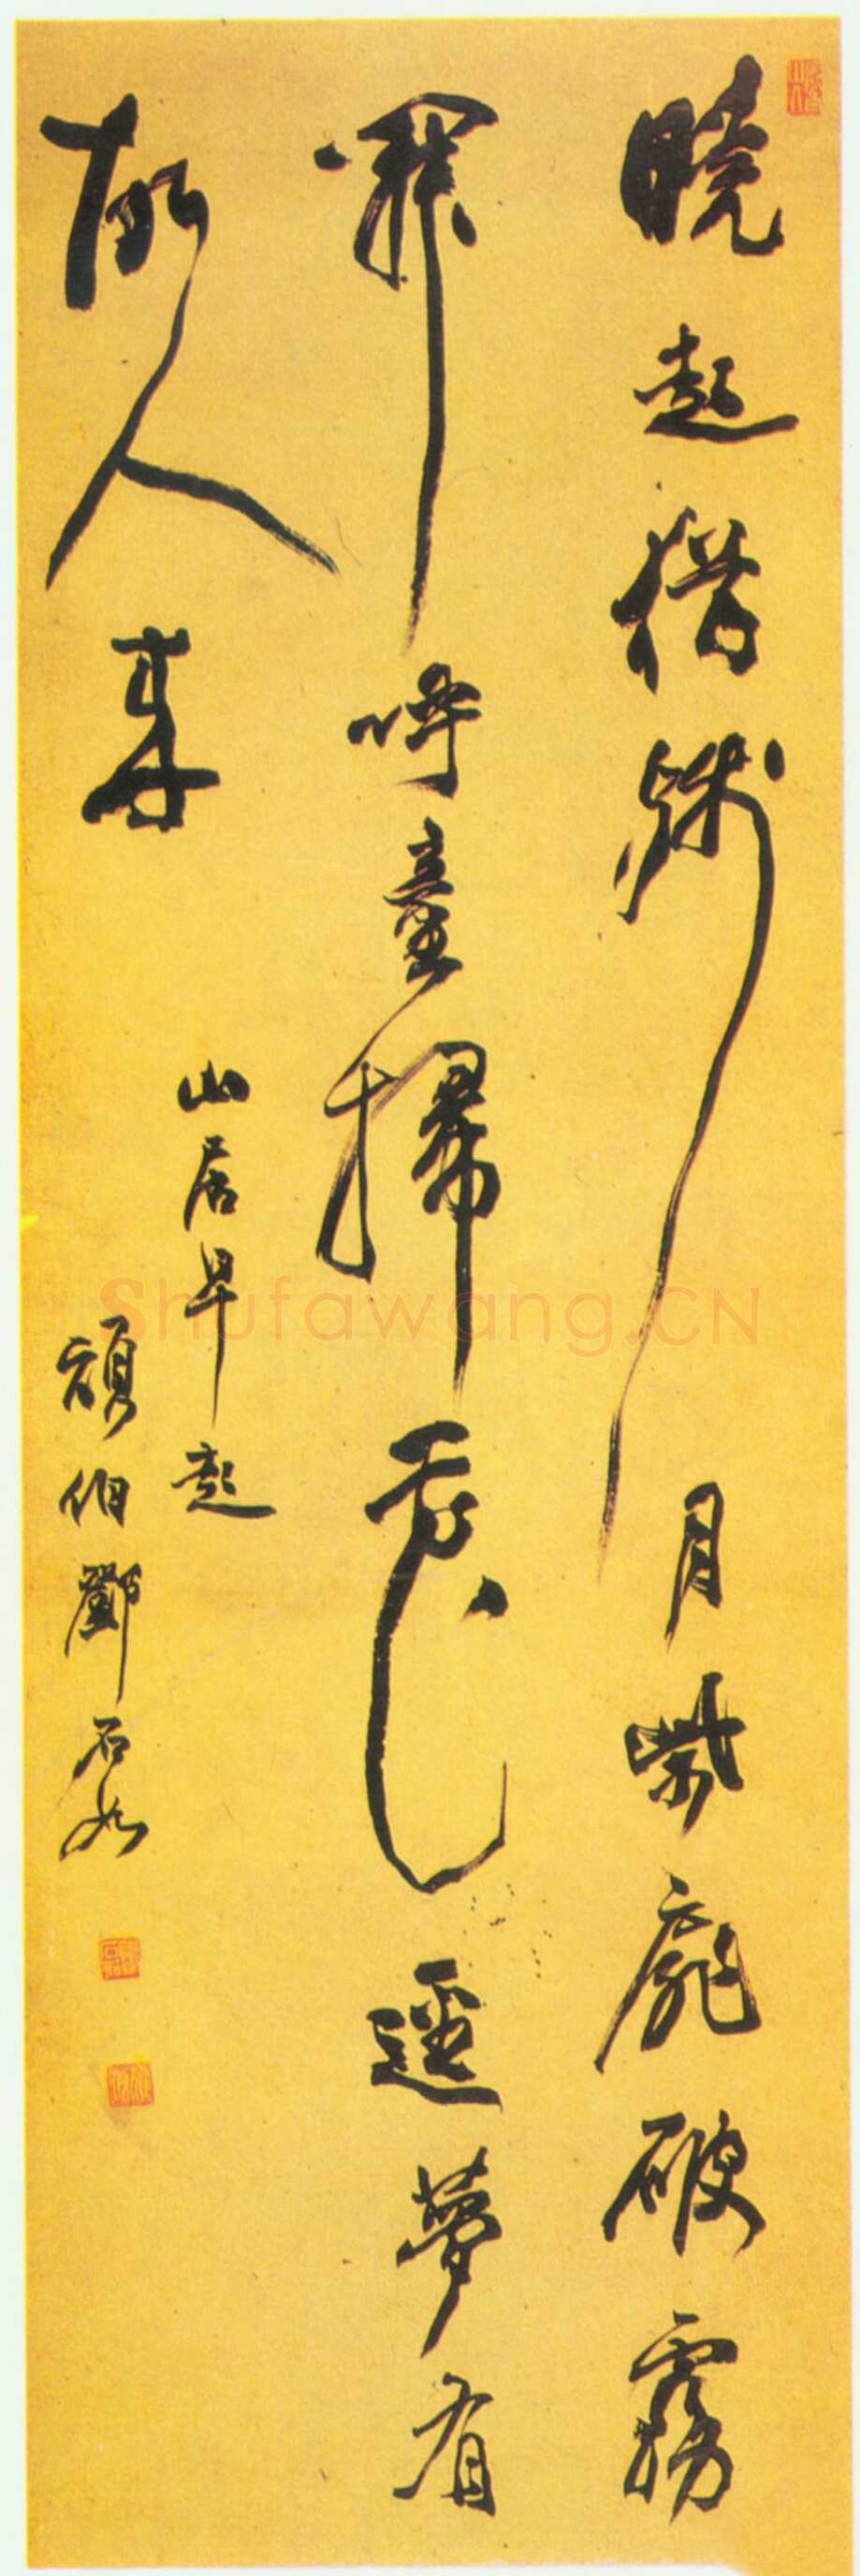 曉起猶殘月柴扉破霧
開呼童掃花逕夢有
故人來
山居早起
頑伯鄧石如
Shufawang.CN